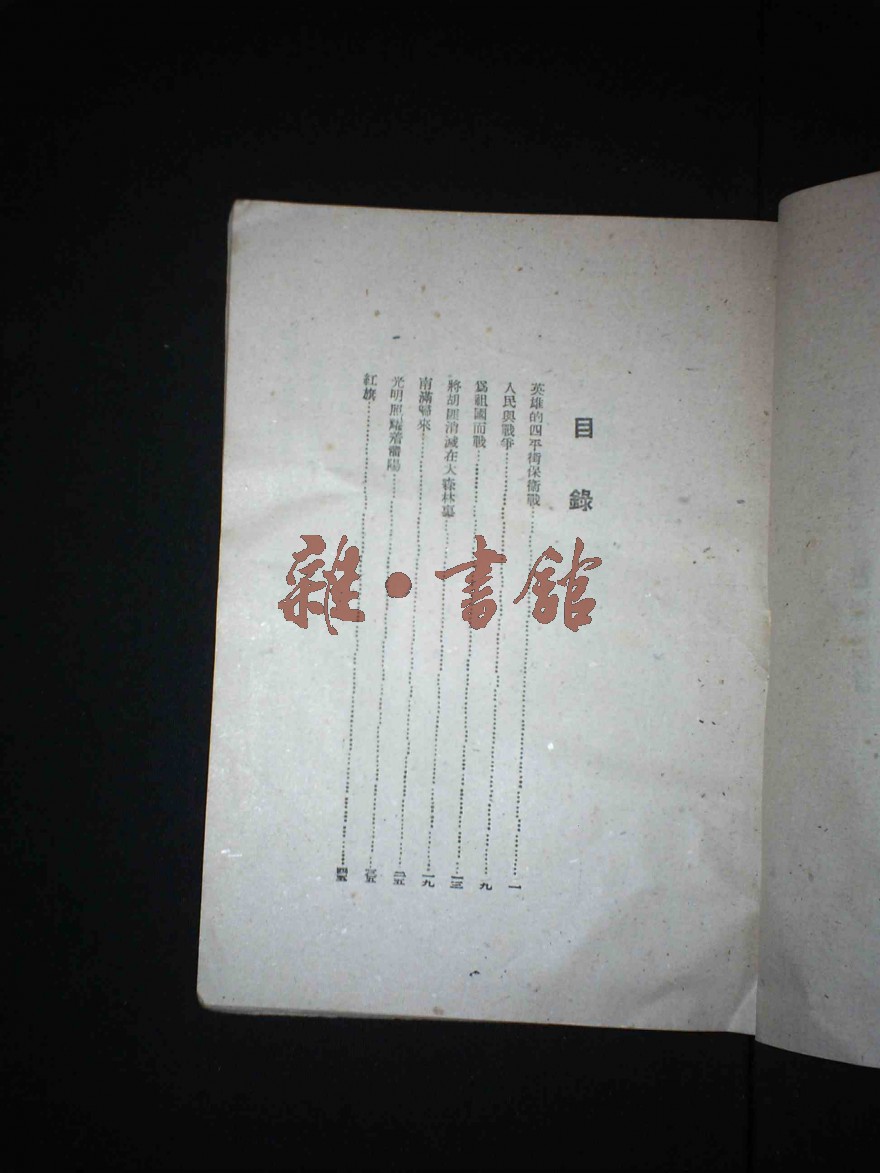 目錄
英雄的四平街保衛戰……一
人民與戰爭……九
爲祖國而戰……一三
將胡匪消滅在大森林裏……一九
南滿歸來……二五
光明照耀着瀋陽……三五
紅旗……四五
雜·書館